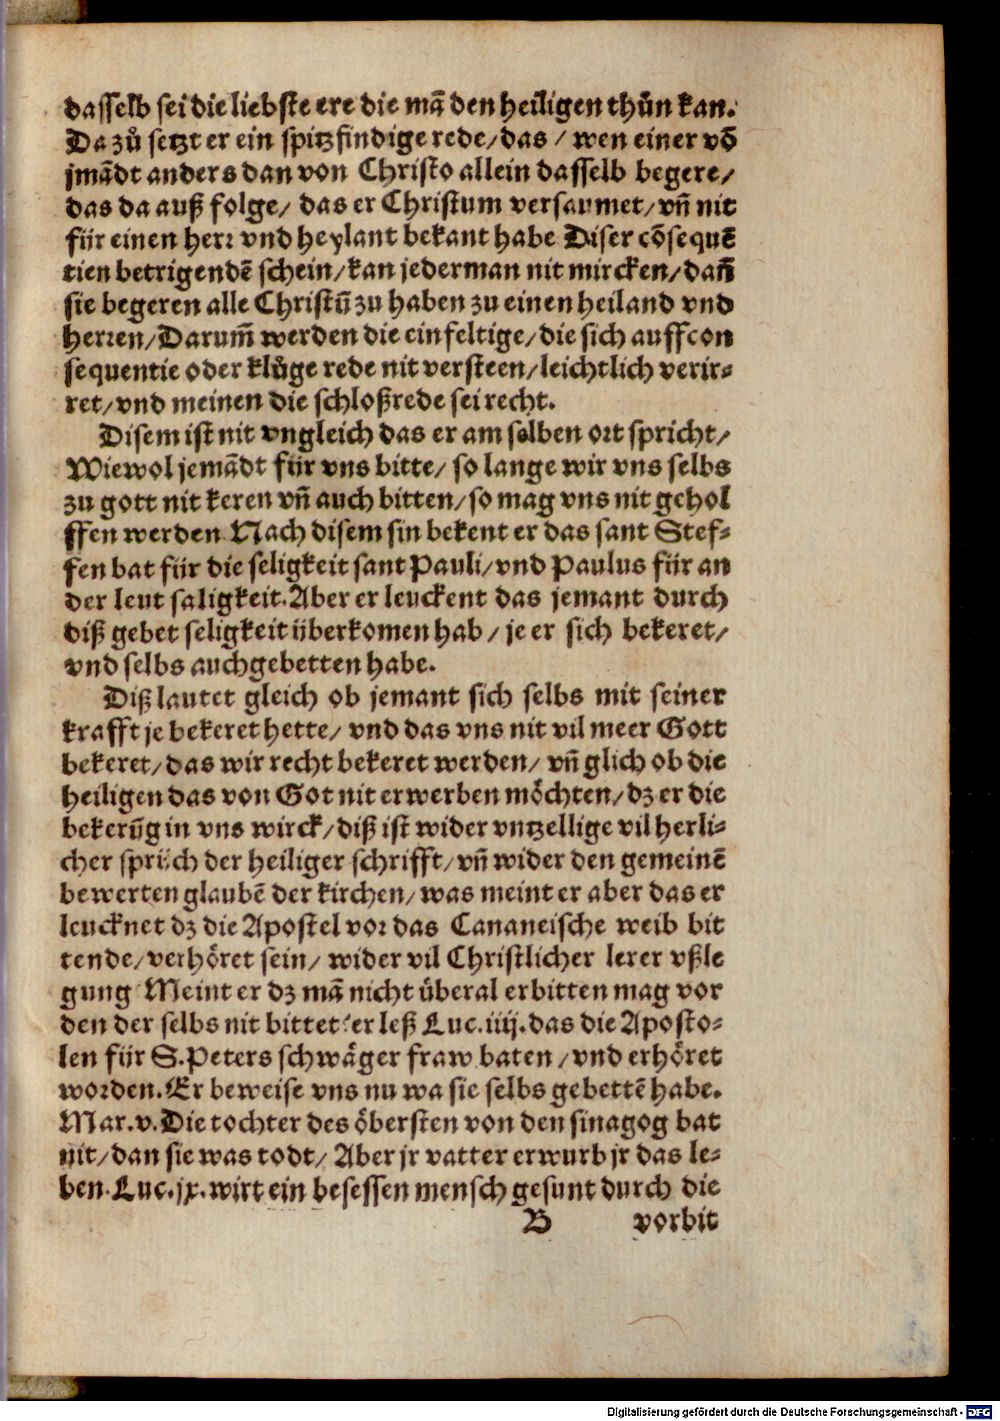 dasselb sei die liebste ere die mā den heiligen thůn kan.
Da zů setzt er ein spitzfindige rede/das / wen einer vō
jmādt anders dan von Christo allein dasselb begere/
das da auß folge/ das er Christum versaumet/vn̄ nit
für einen herr vnd heylant bekant habe Diser cōsequē
tien betrigendē schein/kan jederman nit mircken/dan̄
sie begeren alle Christū zu haben zu einen heiland vnd
herren/Darum̄ werden die einfeltige/die sich auff con
sequentie oder klůge rede nit versteen/leichtlich verir-
ret/vnd meinen die schloßrede sei recht.
Disem ist nit vngleich das er am selben ort spricht/
Wiewol jemādt für vns bitte/ so lange wir vns selbs
zu gott nit keren vn̄ auch bitten/so mag vns nit gehol
ffen werden. Nach disem sin bekent er das sant Stef-
fen bat für die seligkeit sant Pauli/vnd Paulus für an
der leut saligkeit.Aber er leuckent das jemant durch
diß gebet seligkeit überkomen hab/ je er sich bekeret/
vnd selbs auch gebetten habe.
Diß lautet gleich ob jemant sich selbs mit seiner
krafft je bekeret hette/ vnd das vns nit vil meer Gott
bekeret/das wir recht bekeret werden/ vn̄ glich ob die
heiligen das von Got nit erwerben möchten/dz er die
bekerūg in vns wirck/diß ist wider vntzellige vil herli-
cher sprüch der heiliger schrifft/vn̄ wider den gemeinē
bewerten glaubē der kirchen/was meint er aber das er
leucknet dz die Apostel vor das Cananeische weib bit
tende/verhöret sein/ wider vil Christlicher lerer vßle
gung Meint er dz mā nicht überal erbitten mag vor
den der selbs nit bittet? er leß Luc.iiij.das die Aposto-
len für S.Peters schwäger fraw baten/vnd erhöret
worden.Er beweise vns nu wa sie selbs gebettē habe.
Mar.v.Die tochter des öbersten von den sinagog bat
nit/dan sie was todt/ Aber jr vatter erwurb jr das le-
ben.Luc.jx.wirt ein besessen mensch gesunt durch die
B vorbit
Digitalisierung gefördert durch die Deutsche Forschungsgemeinschaft - DFG